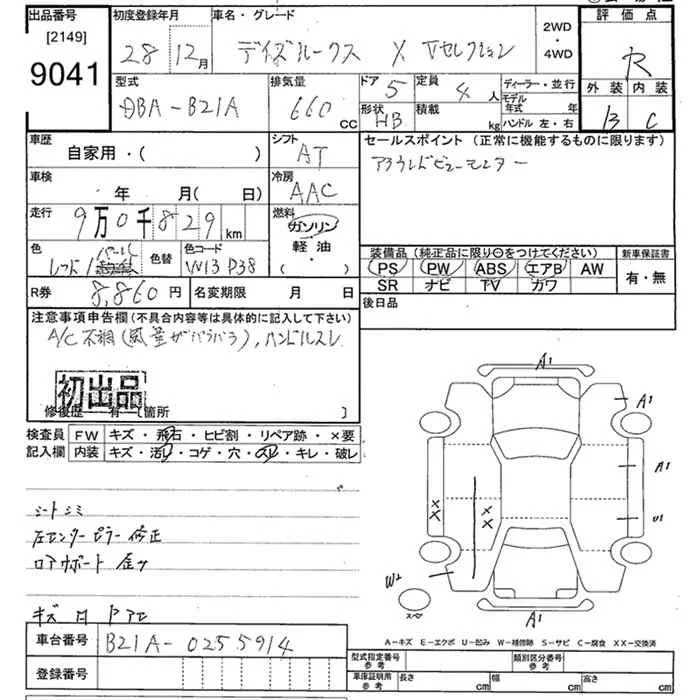 出品番号
[2149]
9041
初度登録年月
28 12月
車名・グレード
デイズルークス X Vセレクション
2WD
・
4WD
評価点
R
型式
DBA-B21A
排気量
660 CC
ドア 5
形状 HB
定員 4 人
積載 kg
ディーラー・並行
モデル年式 年
ハンドル 左・右
外装 内装
B C
車歴
自家用・( )
シフト
AT
セールスポイント (正常に機能するものに限ります)
アラウンドビューモニター
車検
・ 年 月( 日)
冷房
AAC
走行
9万0千829 km
燃料
ガソリン
軽油・
( )
色
レッド
色替
色コード
W13 P38
装備品 (純正品に限り○をつけてください)
PS PW ABS エアB AW
SR ナビ TV カワ
新車保証書
有・無
R券 8,860円
名変期限 月 日
後日品
注意事項申告欄(不具合内容等は具体的に記入して下さい)
A/C不調(風量がバラバラ),ハンドルスレ
初出品
修復歴 有 [箇所 ]
検査員
記入欄
FW キズ・飛石・ヒビ割・リペア跡・×要
内装 キズ・汚れ・コゲ・穴・スレ・キレ・破レ
シートシミ
左センターピラー修正
ロアサポート
A1
A1
A1
U1
X
X
X
X
W2
スペア
A1
A-キズ E-エクボ U-凹み W-補修跡 S-サビ C-腐食 XX-交換済
車台番号
B21A-0255914
登録番号
型式指定番号
参考
類別区分番号
参考
車庫証明用
参考
長さ cm
幅 cm
高さ cm